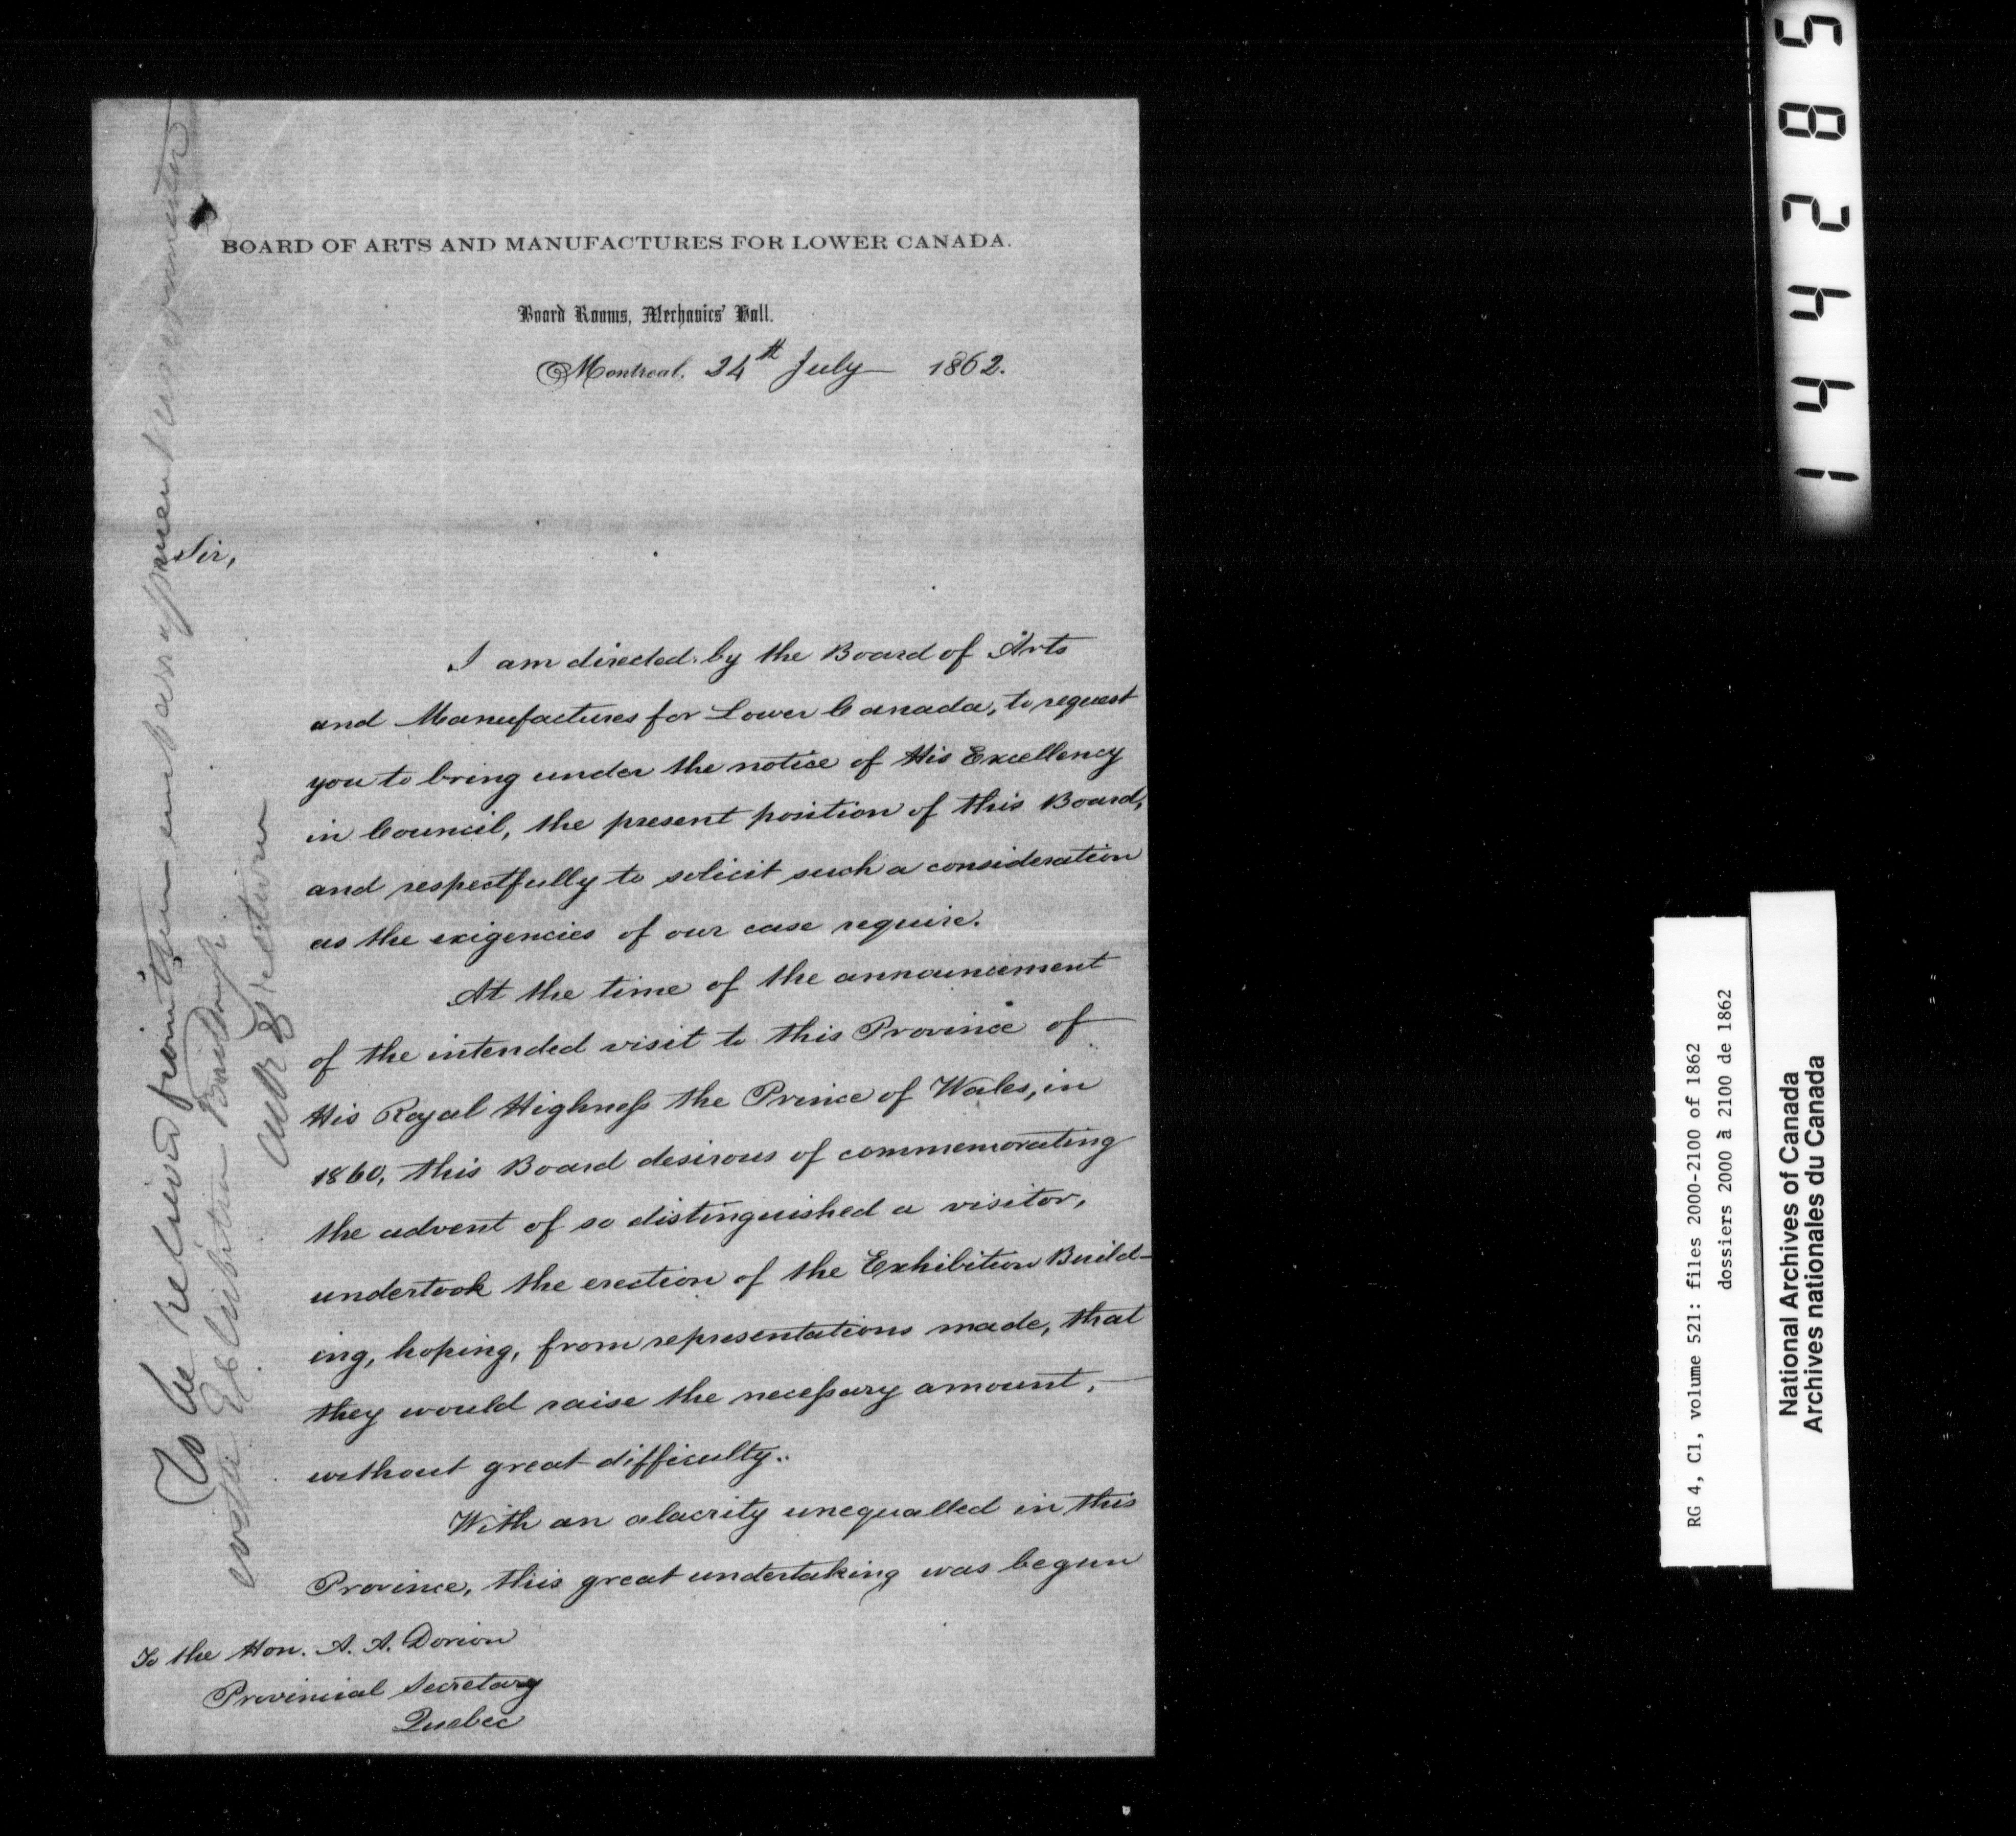 BOARD OF ARTS AND MANUFACTURES FOR LOWER CANADA.
Board Rooms, Mechanics' Hall.
Montreal. 24th July 1862.
Sir,
I am directed by the Board of Arts
and Manufactures for Lower Canada, to request
you to bring under the notice of His Excellency
in Council, the present position of this Board,
and respectfully to solicit such a consideration
as the exigencies of our case require.
At the time of the announcement
of the intended visit to this Province of
His Royal Highness the Prince of Wales, in
1860, this Board desirous of commemorating
the advent of so distinguished a visitor,
undertook the erection of the Exhibition Build-
ing, hoping, from representations made, that
they would raise the necessary amount,
without great difficulty.
With an alacrity unequalled in this
Province, this great undertaking was begun
To the Hon. A. A. Dorion
Provincial Secretary
Quebec
To be relieved from their embarrassment
Exhibition Buildings
144285
RG 4, C1, volume 521: files 2000-2100 of 1862
dossiers 2000 à 2100 de 1862
National Archives of Canada
Archives nationales du Canada